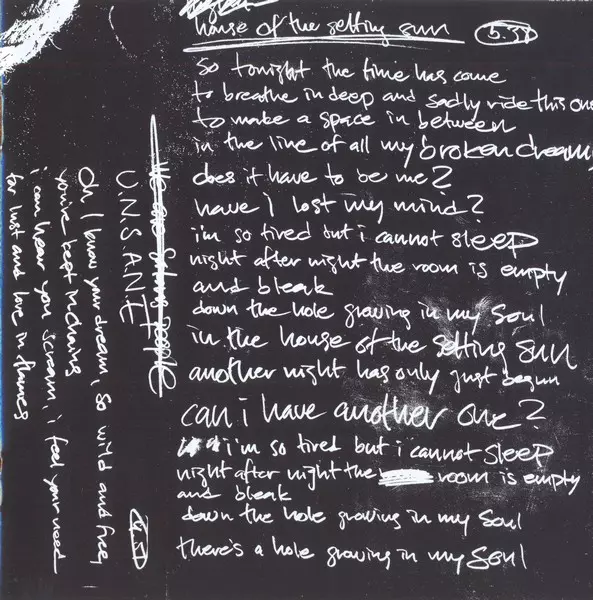 house of the setting sun 5.37
so tonight the time has come
to breathe in deep and sadly ride this one
to make a space in between
in the line of all my broken dreams
does it have to be me?
have i lost my mind?
i'm so tired but i cannot sleep
night after night the room is empty
and bleak
down the hole growing in my soul
in the house of the setting sun
another night has only just begun
can i have another one?
i'm so tired but i cannot sleep
night after night the room is empty
and bleak
down the hole growing in my soul
there's a hole growing in my soul
people
U.N.S.A.N.E
Oh, I know your dream, so wild and free,
you've kept in chains
i can hear you scream, i feel your need
for lust and love in flames